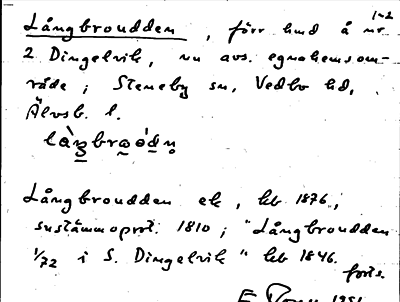 1-2
Långbroudden, förr hmd å nr
2 Dingelvik, nu avs. egnahemsom-
råde i Steneby sn, Vedbo hd,
Älvsb. l.
Långbroudden ek, hb 1876;
sustämmoprot. 1810; "Långbroudden
1/72 i S. Dingelvik" hb 1846.
forts.
E 1951